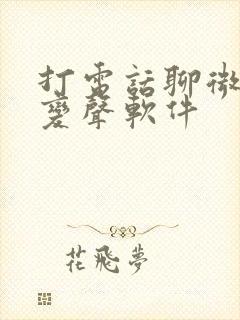 打電話聊微
變聲軟件
花飛夢